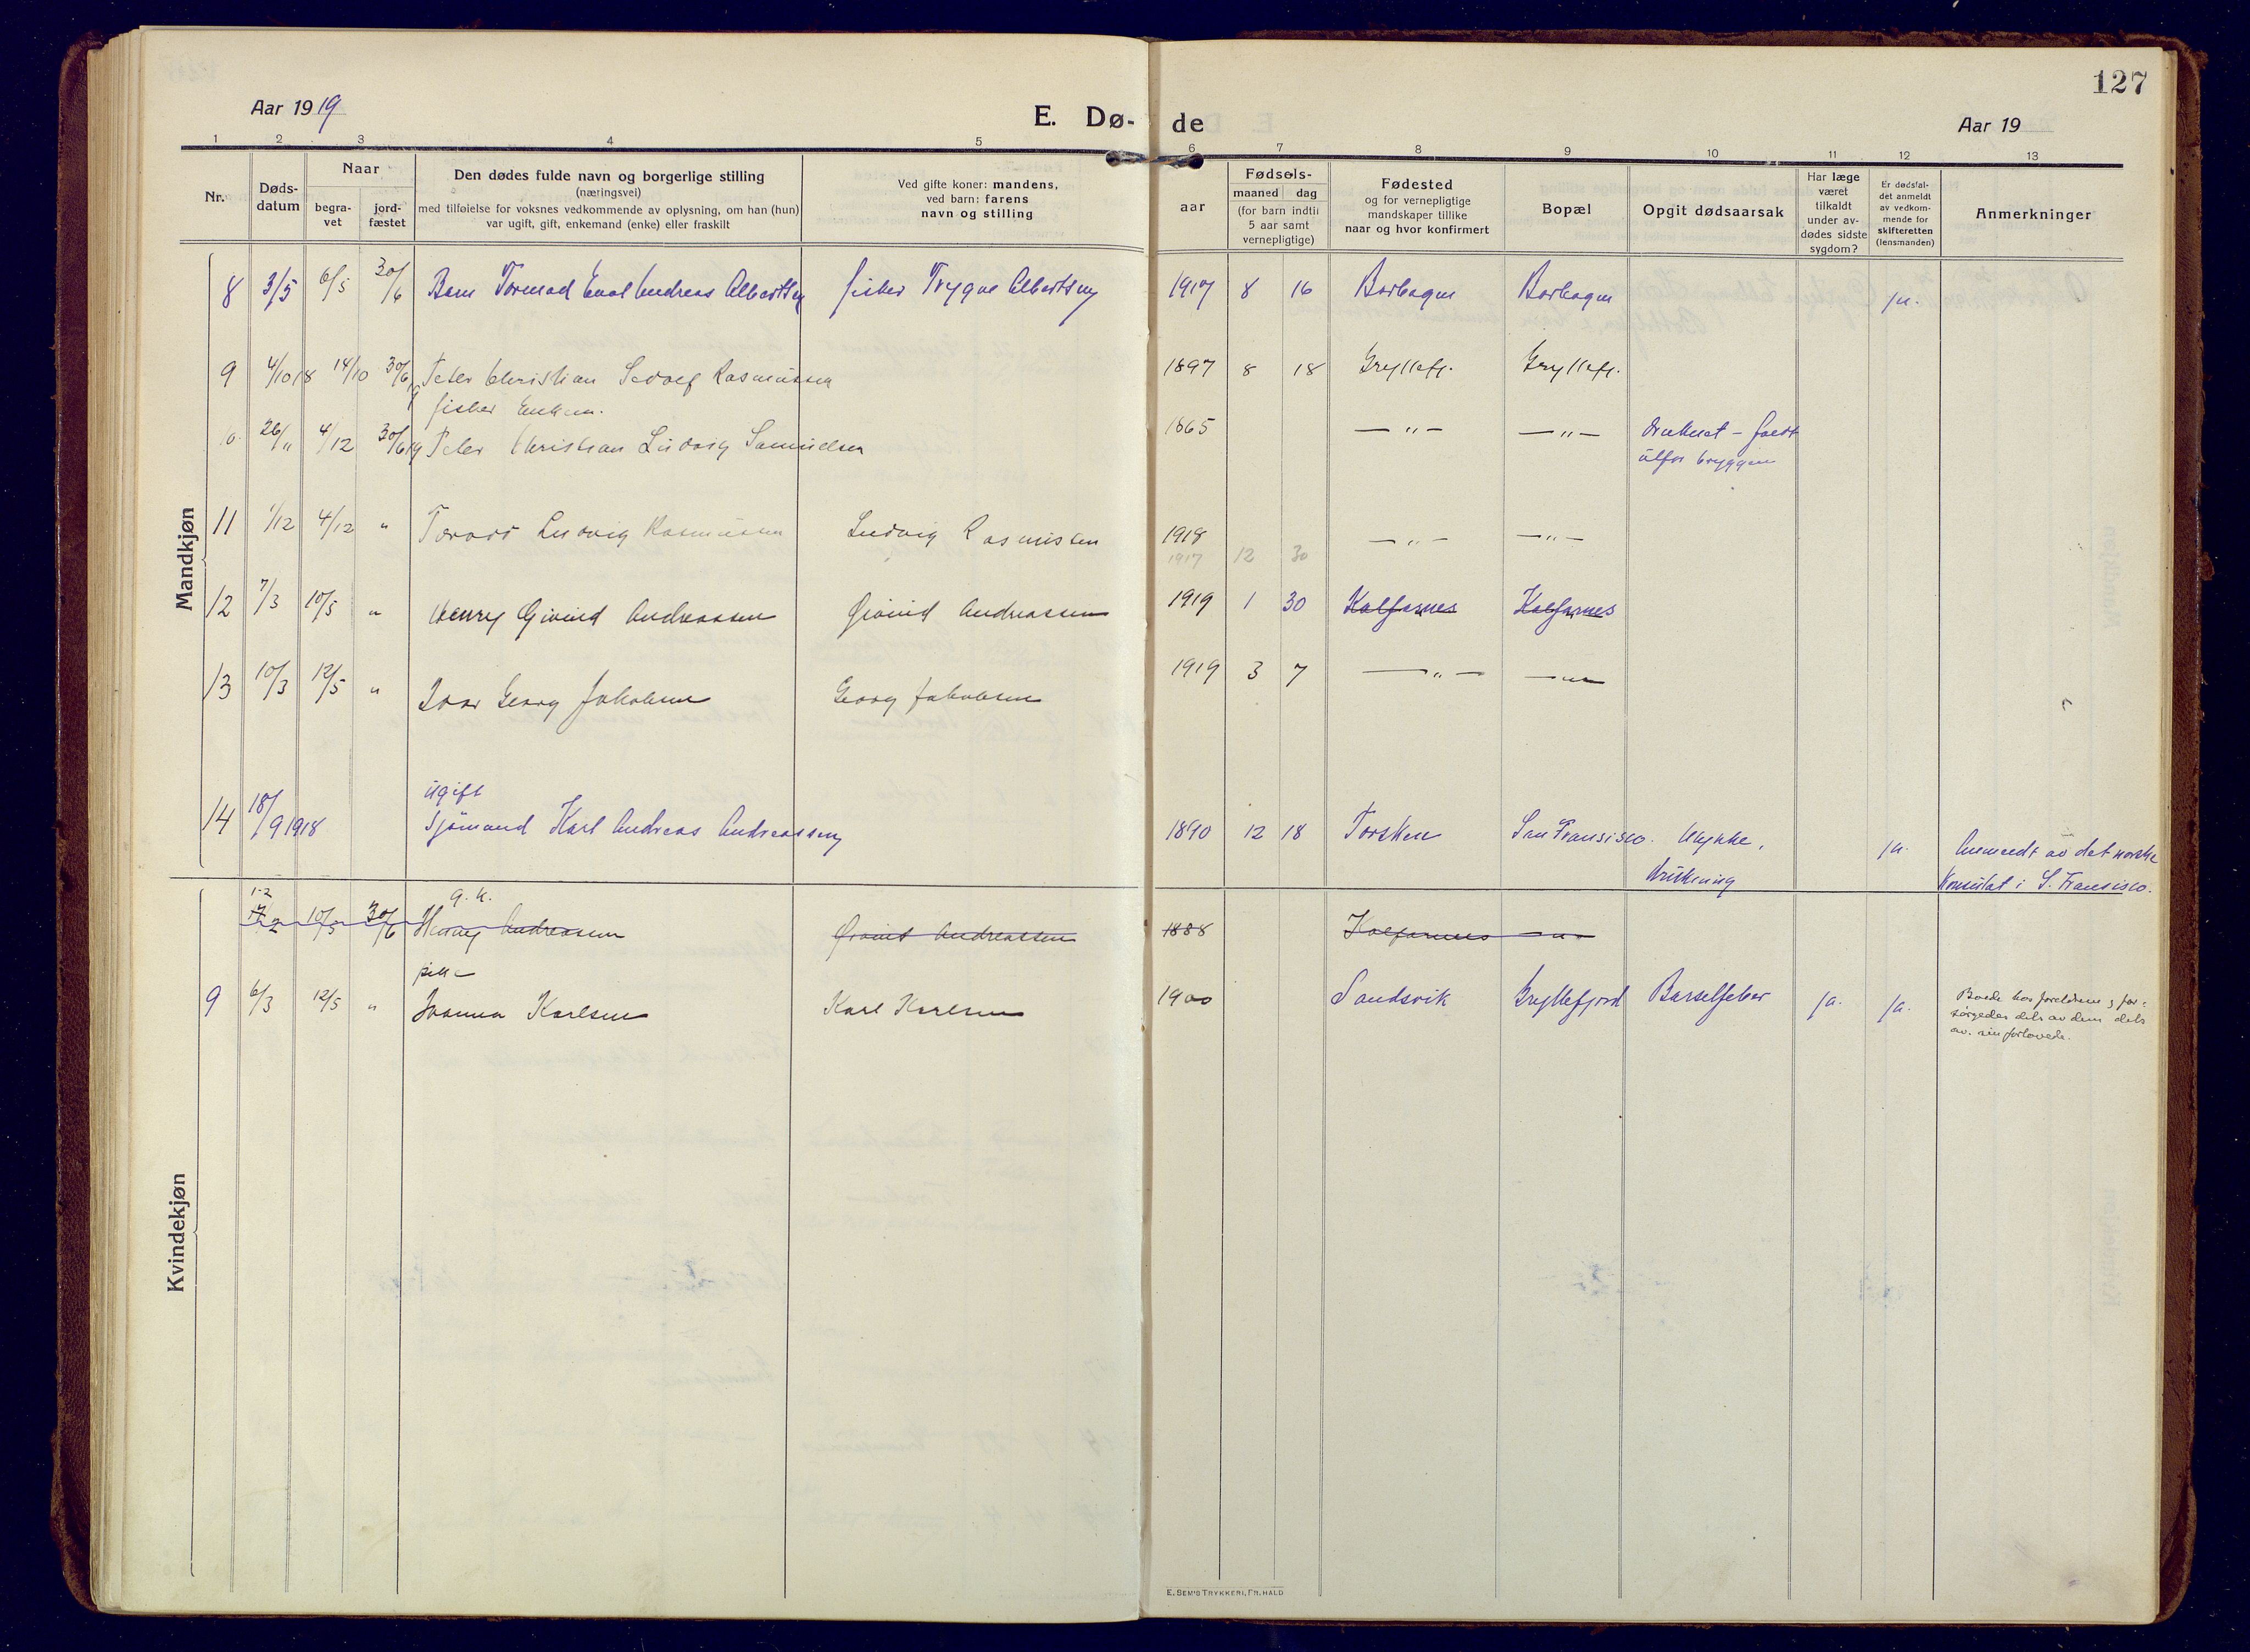 127
Aar 1919
E. Dø-
de
Aar 19
1 2 3 4 5 6 7 8 9 10 11 12 13
Nr.
Døds-
datum
Naar
begra-
vet
jord-
fæstet
Den dødes fulde navn og borgerlige stilling
(næringsvei)
med tilføielse for voksnes vedkommende av oplysning, om han (hun)
var ugift, gift, enkemand (enke) eller fraskilt
Ved gifte koner: mandens,
ved barn: farens
navn og stilling
aar
Fødsels-
maaned dag
(for barn indtil
5 aar samt
vernepligtige)
Fødested
og for vernepligtige
mandskaper tillike
naar og hvor konfirmert
Bopæl
Opgit dødsaarsak
Har læge
været
tilkaldt
under av-
dødes sidste
sygdom?
Er dødsfal-
det anmeldt
av vedkom-
mende for
skifteretten
(lensmanden)
Anmerkninger
Mandkjøn
8 3/5 6/5 30/6 Barn Tormod Andreas Albertsen fisker Trygve Albertsen 1917 8 16 ja.
9 4/10 18 14/10 30/6 19 Peter Christian Rasmussen 1897 8 18 Gryllefj. Gryllefj.
fisker
10. 26/11 4/12 30/6 19 Peter Christian Ludvig Samuelsen 1865 — " — — " — druknet – faldt
utfor bryggen
11 1/12 4/12 " Ludvig Rasmussen Ludvig Rasmussen 1918 — " — — " —
1917 12 30
12 7/3 10/5 " Henry Eivind Andreassen Eivind Andreassen 1919 1 30 Kalfarnes Kalfarnes
13 10/3 12/5 " Ivar Georg Jakobsen Georg Jakobsen 1919 3 7 — " — — " —
ugift
14 18/9 1918 Sjømand Karl Andreas Andreassen 1890 12 18 Torsken San Fransisco. Ulykke, ja. Anmeldt av det norske
drukning Konsulat i S. Fransisco.
Kvindekjøn
g.k.
10/5 30/6 Henny Andreassen Eivind Andreassen 1888 Kalfarnes — " —
pike
9 6/3 12/5 " Joanna Karlsen Karl Karlsen 1900 Sandsvik Gryllefjord Barselfeber ja. ja. Boede hos foreldrene, for-
sørgedes dels av dem dels
av sin forlovede.
E. SEM'S TRYKKERI, FR. HALD